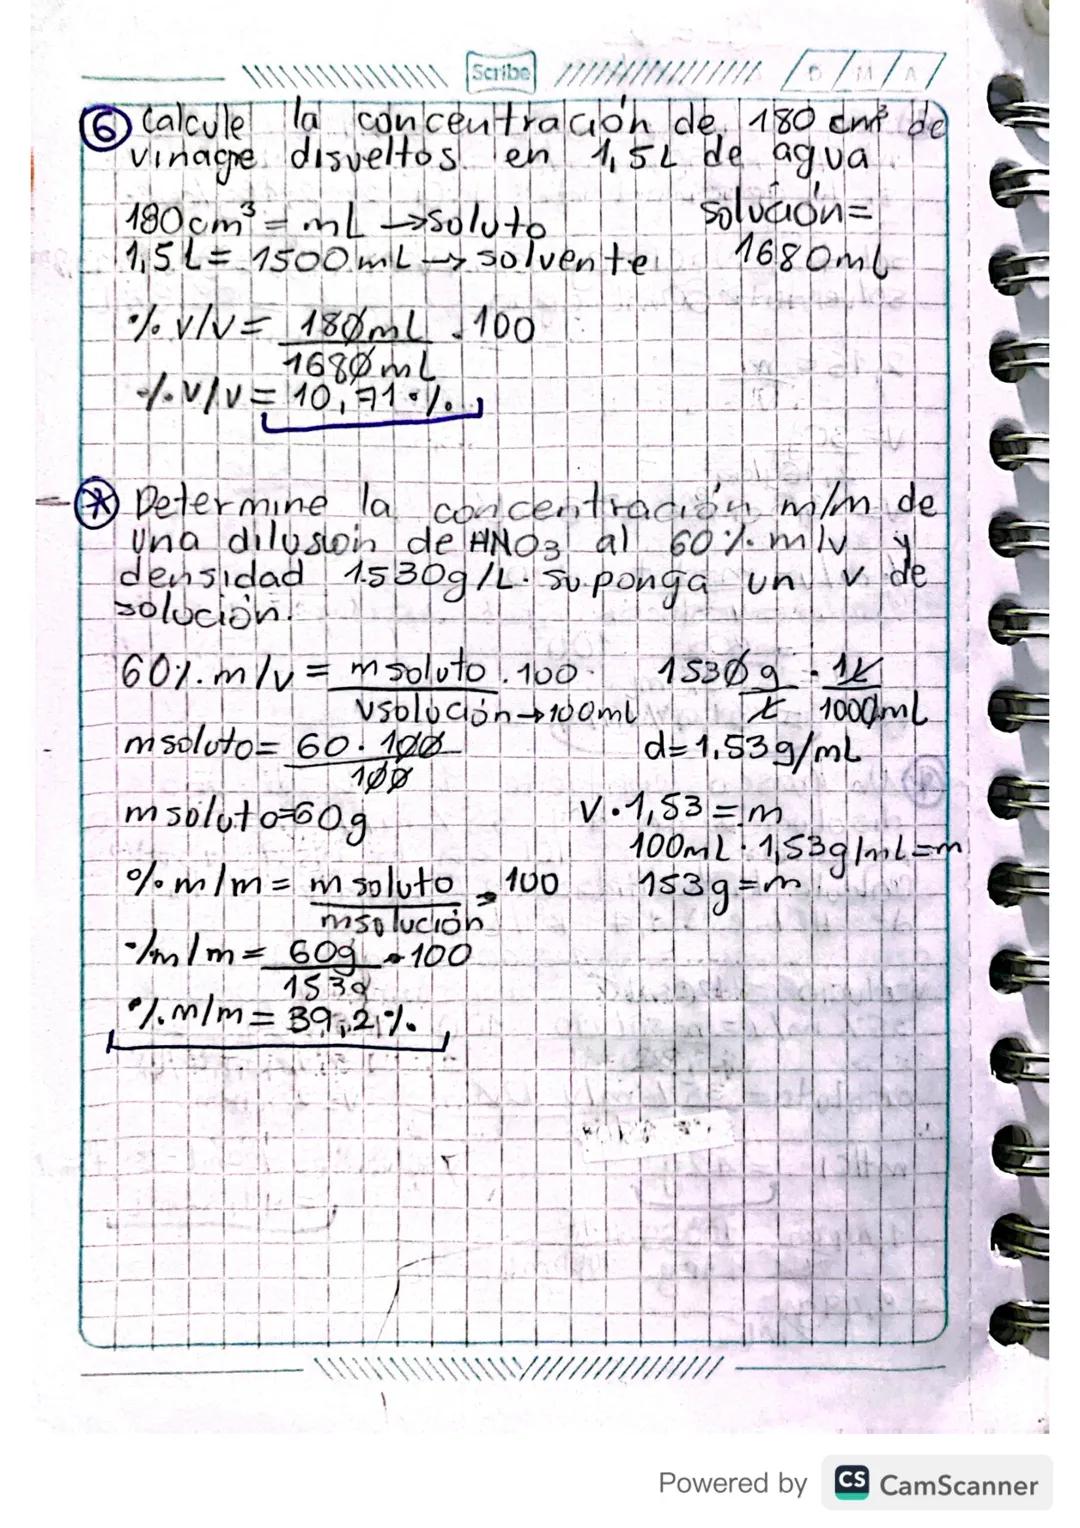 Scribe
D / M / A
6 Calcule la concentración de 180 cm³ de
vinagre disueltos en 1,5L de agua
180cm³ = mL → soluto
solución=
1,5L = 1500 mL → solvente
1680mL
% v/v = 180mL / 1680mL · 100
% v/v = 10,71 %
* Determine la concentración m/m de
una dilusion de HNO3 al 60% m/v y
densidad 1530g/L. suponga un v de
solución.
60% m/v = m soluto / vsolución→100mL · 100
1530g / L · 1L / 1000mL
m soluto = 60 · 100 / 100
d= 1,53g/mL
m soluto=60g
V · 1,53 = m
100mL · 1,53g/mL=m
% m/m = m soluto / msolución · 100
153g = m
% m/m = 60g / 153g · 100
% m/m = 39,2%
Powered by CS CamScanner